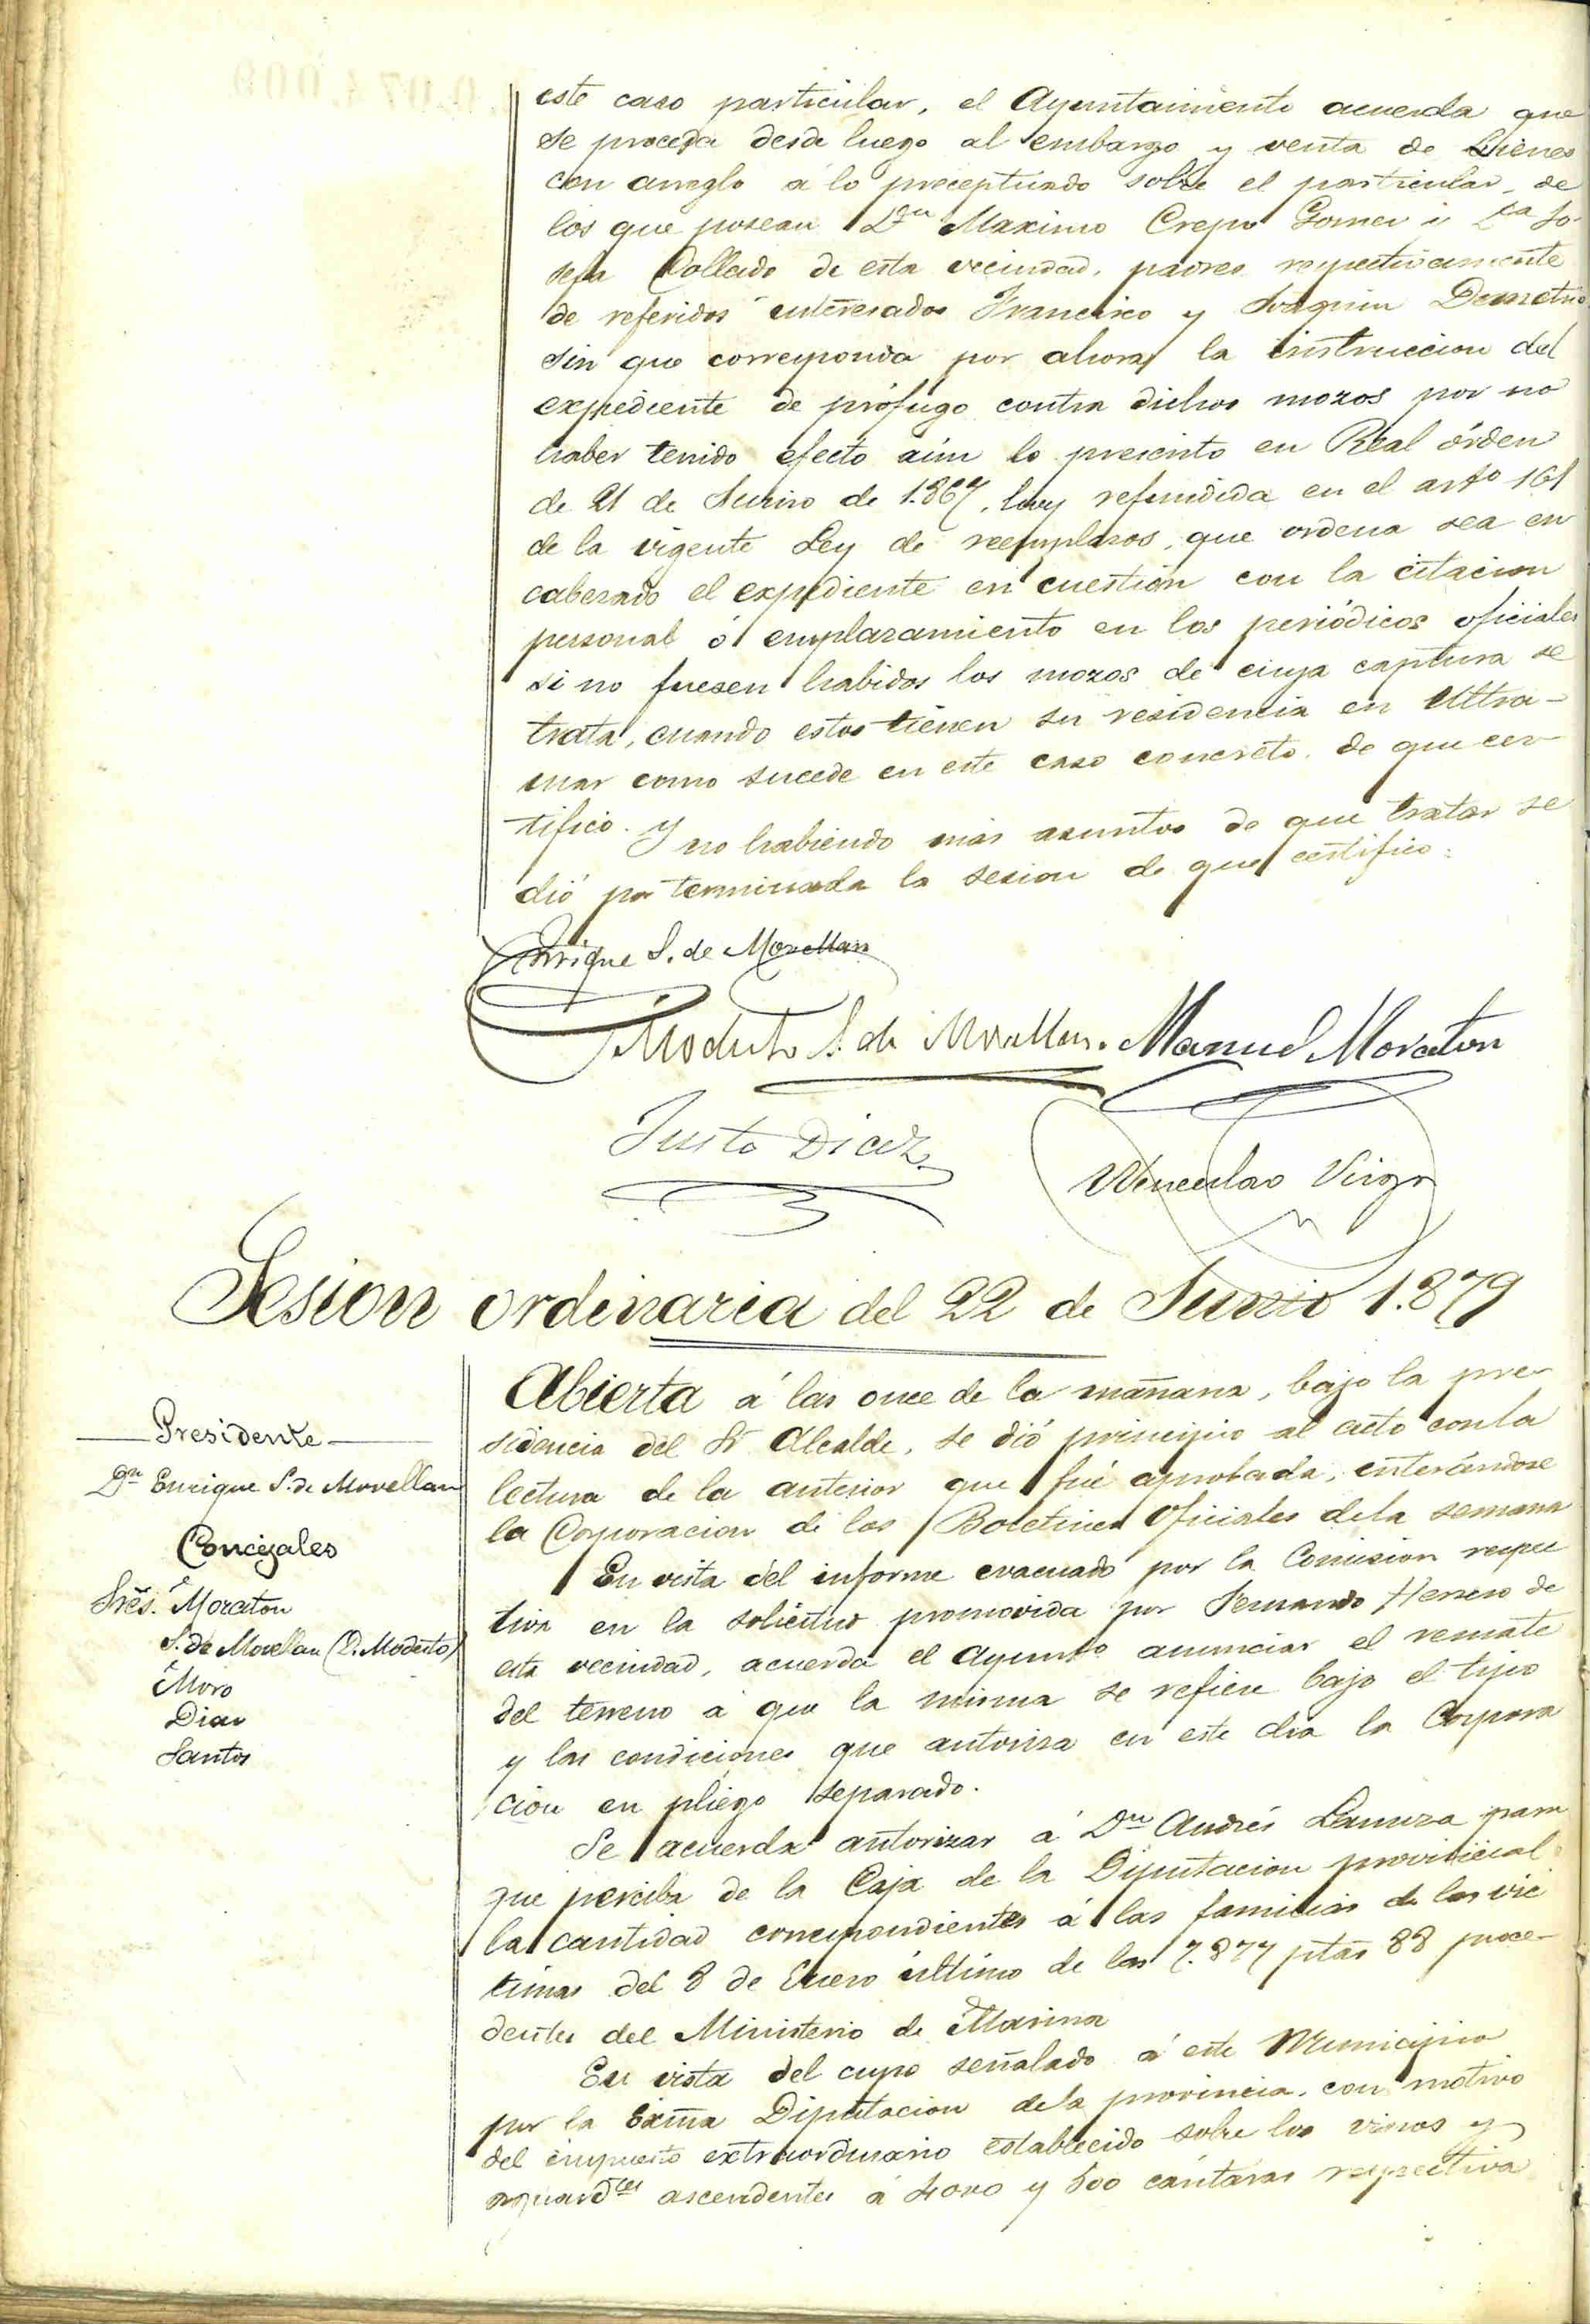 este caso particular, el Ayuntamiento acuerda que
se proceda desde luego al embargo y venta de bienes
con arreglo á lo preceptuado sobre el particular, de
los que posean Dn Maximo Crespo Gomez é Da Jo-
sefa Collado de esta vecindad, padres respectivamente
de referidos interesados Francisco y Joaquin Demetrio
sin que corresponda por ahora la instruccion del
expediente de prófugo contra dichos mozos por no
haber tenido efecto aún lo prescrito en Real órden
de 21 de Junio de 1.867, hoy refundida en el arto 161
de la vigente Ley de reemplazos, que ordena sea en
cabezado el expediente en cuestión con la citacion
personal ó emplazamiento en los periódicos oficiales
si no fuesen habidos los mozos de cuya captura se
trata, cuando estos tienen su residencia en Ultra-
mar como sucede en este caso concreto. de que cer-
tifico. Y no habiendo más asuntos de que tratar se
dió por terminada la sesion de que certifico.
Enrique S. de Movellan
Modesto S. de Movellan. Manuel Moraton
Justo Diaz
Wenceslao Virgo
Sesion ordinaria del 22 de Junio 1.879
Presidente
Dn Enrique S. de Movellan
Concejales
Srēs. Moraton
S. de Movellan (D. Modesto)
Moro
Diaz
Santos
Abierta á las once de la mañana, bajo la pre-
sidencia del Sr Alcalde, se dió principio al acto con la
lectura de la anterior que fué aprobada, enterándose
la Corporacion de los Boletines Oficiales de la semana
En vista del informe evacuado por la Comision respec
tiva en la solicitud promovida por Fernando Herrero de
esta vecindad, acuerda el Ayunto anunciar el remate
del terreno á que la misma se refiere bajo el tipo
y las condiciones que autoriza en este dia la Corpora
cion en pliego separado.
Se acuerda autorizar á Dn Andrés Lanuza para
que perciba de la Caja de la Diputacion provincial
la cantidad correspondientes á las familias de las víc
timas del 8 de Enero último de las 7.877 ptas 88 proce-
dentes del Ministerio de Marina
En vista del cupo señalado á este Municipio
por la Exma Diputacion de la provincia, con motivo
del impuesto extraordinario establecido sobre los vinos y
aguardtes ascendentes á 4000 y 500 cántaras respectiva